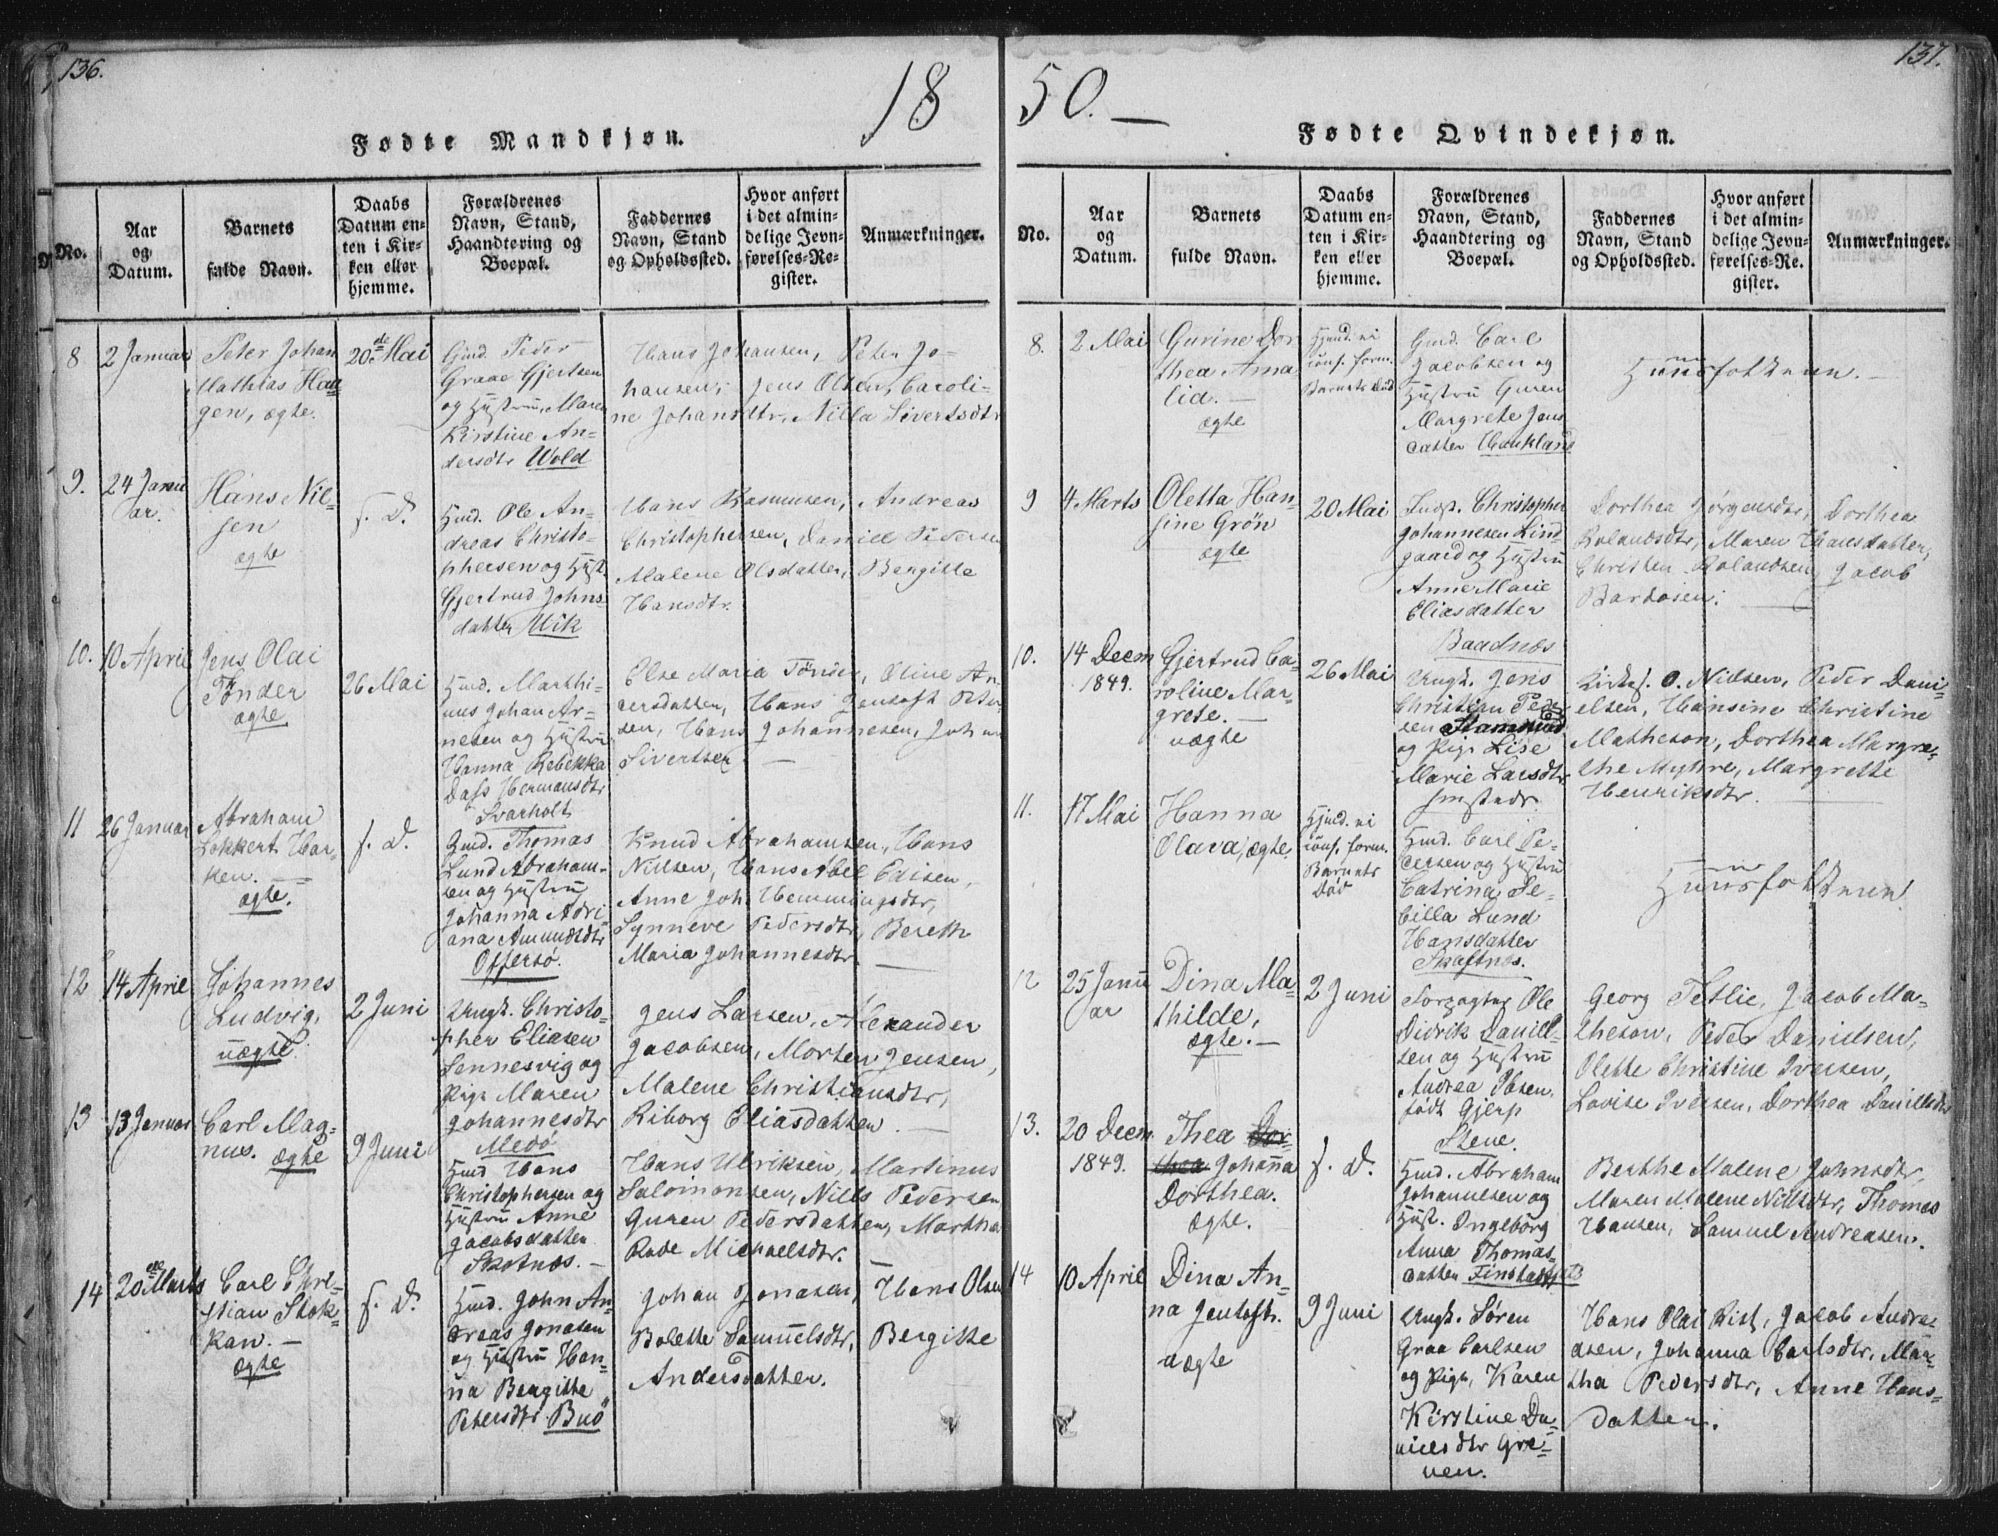 136.
18
Fødte Mandkjøn.
No.
Aar
og
Datum.
Barnets
fulde Navn.
Daabs
Datum en-
ten i Kir-
ken eller
hjemme.
Forældrenes
Navn, Stand,
Haandtering og
Boepæl.
Faddernes
Navn, Stand
og Opholdssted.
Hvor anført
i det almin-
delige Jevn-
førelses-Re-
gister.
Anmærkninger.
8
2 Januar
Peter Johan
Mathias Haa-
gen, ægte.
20de Mai
Gmd. Peder
Graae Gjertsen
og Hustru, Maren
Kirstine An-
dersdtr Wold
Hans Johansen, Peter Jo-
hansen, Jens Olsen, Caroli-
ne Johansdtr, Nilla Sivertsdtr
9.
24 Janu
ar.
Hans Nil-
sen
ægte
f. D.
Hmd. Ole An-
dreas Christo-
phersen og Hust.
Gjertrud Johns-
datter Uik
Hans Rasmusen, Andreas
Christophersen, Daniel Pedersen
Malene Olsdatter, Bergitte
Hansdtr.
10.
10 April
Jens Olai
Tønder
ægte
26 Mai
Hmd. Marthi-
nus Johan Ar-
nesen og Hustru
Hanna Rebekka
Dass Hermansdtr
Svarholt
Else Maria Tønder, Oline An-
dersdatter, Hans Jentoft Peter-
sen, Hans Johannesen, Johan
Sivertsen
11
26 Januar
Abraham
Lokkert Har-
ken.
ægte.
f. d.
Hmd. Thomas
Lund Abraham-
sen og Hustru
Johanna Adri-
ana Amundsdtr
Offersø.
Knud Abrahamsen, Hans
Nilsen, Hans Abel Edisen,
Anne Joh. Hemmingsdtr,
Synneve Pedersdtr, Bereth
Maria Johannesdtr.
12
14 April
Johannes
Ludvig,
uægte.
2 Juni
Ungk. Christo-
pher Eliesen
Sennesvig og
Pige Maren
Johannesdtr
Medø
Jens Larsen, Alexander
Jacobsen, Morten Jensen,
Malene Christiansdtr,
Riborg Eliasdatter.
13
13 Januar
Carl Mag-
nus. ægte
9 Juni
Hmd Hans
Christophersen og
Hustru Anne
Jacobsdatter
Skotnæs.
Hans Ulriksen, Martinus
Salomonsen, Niels Pedersen
Guren Pedersdatter, Martha
Rabe Michaelsdtr.
14
20de Marts
Carl Chri-
stian Stok-
kan.
ægte
f. D.
Hmd. John An-
dreas Jonasen
og Hustru Han-
na Bergitte
Petersdtr Buø
Johan Jonasen, Hans Olsen
Bolette Samuelsdtr, Bergitte
Andersdatter.
137.
50.
Fødte Qvindekjøn.
No.
Aar
og
Datum.
Barnets
fulde Navn.
Daabs
Datum en-
ten i Kir-
ken eller
hjemme.
Forældrenes
Navn, Stand,
Haandtering og
Boepæl.
Faddernes
Navn, Stand
og Opholdssted.
Hvor anført
i det almin-
delige Jevn-
førelses-Re-
gister.
Anmærkninger.
8.
2 Mai
Gurine Dor
thea Ama
lia.
ægte
Hjmd. ei
conf. form.
Barnets Død
Gmd. Carl
Jacobsen og
Hustru Guren
Margrete Jens
datter Haukland
Huusfolkene.
9
4 Marts
Oletta Han-
sine Grøn
ægte
20 Mai
Christopher
Johannesen Lind-
gaard og Hustru
Anne Marie
Eliasdatter
Baadnæs
Dorthea Jørgensdtr, Dorthea
Rolandsdtr, Maren Hansdatter,
Christen Rolandsen, Jacob
10.
14 Decm
1849.
Gjertrud Ca-
roline Mar-
grete.
uægte
26 Mai
Ungk. Jens
Christian Peder
sen Stamsund
og Pige Lise
Marie Larsdtr
Kirkes. O. Nielsen, Peder Dani-
elsen, Hansine Christine
Matheson, Dorthea Margre-
the Myhre, Margrethe
Henriksdtr.
11.
17 Mai
Hanna
Olava, ægte.
Hjmd. ei
conf. form.
Barnets
Død
Hmd. Carl Pe-
dersen og Hustru
Catrina Se-
cilla Lund
Hansdatter
Skaftnæs.
Huusfolkene.
12
25 Janu
ar
Dina Ma-
thilde,
ægte.
2 Juni
Forpagter Ole
Didrik Daniel-
sen og Hustru
Andrea Ibsen,
født Gjerp
Stene.
Georg Tetlie, Jacob Ma-
theson, Peder Danielsen,
Olette Christine Iversen,
Lovise Iversen, Dorthea Danielsdtr
13.
20 Decm
1849.
Thea Dor-
thea Johanna
Dorthea.
ægte.
f. d.
Hmd. Abraham
Johannesen og
Hust. Ingeborg
Anna Thomas-
datter
Berthe Malene Johnsdtr,
Maren Malene Nilsdtr, Thomas
Hansen, Samuel Andreasen.
14
10 April
Dina An-
na Jentoft.
uægte
9 Juni
Ungk. Søren
Graa Carlsen
og Pige, Karen
Kirstine Da-
nielsdtr Gra-
ven.
Hans Olai Rist, Jacob Andre-
asen, Johanna Carlsdtr, Mar-
tha Pedersdtr, Anne Hans-
datter.